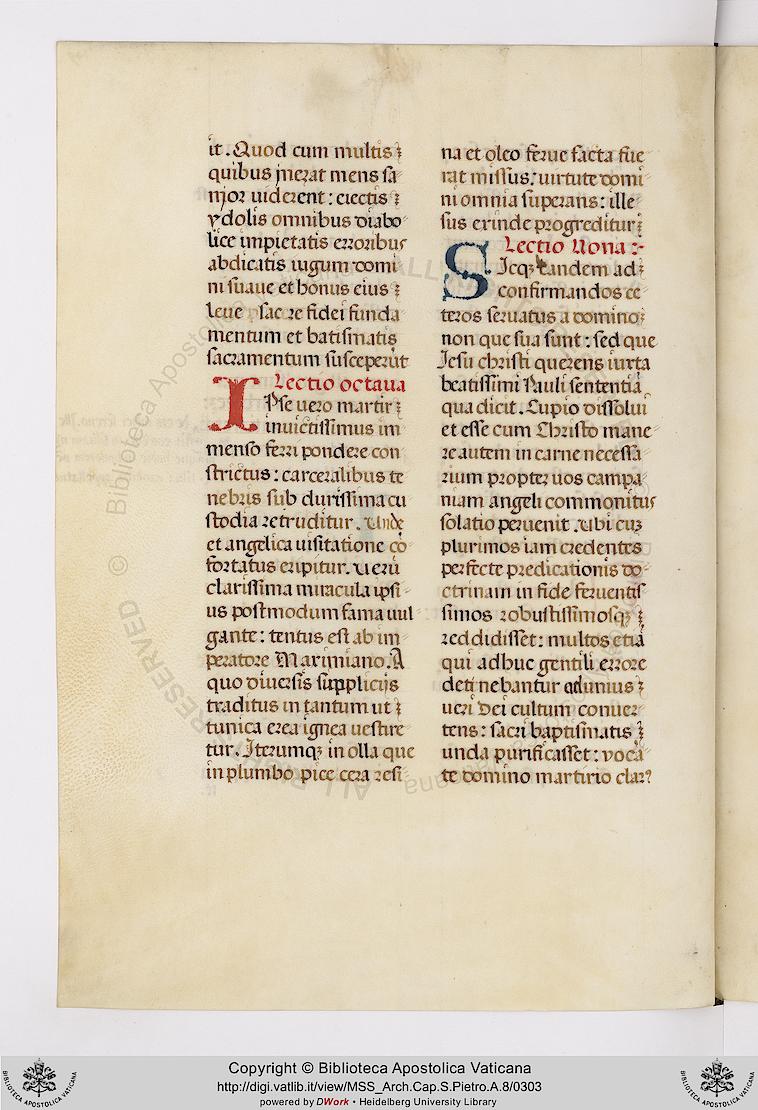 it. Quod cum multis
quibus inerat mens sa
nior uiderent: eiectis
ydolis omnibus diabo
lice impietatis erroribus
abdicatis iugum domi
ni suaue et honus eius
leue sacre fidei funda
mentum et batismatis
sacramentum susceperūt
Lectio octaua
IPse uero martir
inuictissimus im
menso ferri pondere con
strictus: carceralibus te
nebris sub durissima cu
stodia retruditur. Unde
et angelica uisitatione cō
fortatus eripitur. Uerū
clarissima miracula ipsi
us postmodum fama uul
gante: tentus est ab im
peratore Maximiano. A
quo diuersis suppliciis
traditus in tantum ut
tunica erea ignea uestire
tur. Iterumqꝫ in olla que
in plumbo pice cera resi
na et oleo ferue facta fue
rat missus: uirtute domi
ni omnia superans: ille
sus exinde progreditur:
Lectio Nona :-
SIcqꝫ tandem ad
confirmandos ce
teros seruatus a domino:
non que sua sunt: sed que
Iesu christi querens iuxta
beatissimi Pauli sententiā
qua dicit. Cupio dissolui
et esse cum Christo mane
re autem in carne necessa
rium propter uos campa
niam angeli commonitus
solatio peruenit. Ubi cuꝫ
plurimos iam credentes
perfecte predicationis do
ctrinam in fide feruentis
simos robustissimosqꝫ
reddidisset: multos etiā
qui adhuc gentili errore
detinebantur ad unius
ueri dei cultum conuer
tens: sacri baptismatis
unda purificasset: vocā
te domino martirio clar
© Biblioteca Apostolica Vaticana
ALL RIGHTS RESERVED
Copyright © Biblioteca Apostolica Vaticana
http://digi.vatlib.it/view/MSS_Arch.Cap.S.Pietro.A.8/0303
powered by DWork • Heidelberg University Library
BIBLIOTECA APOSTOLICA VATICANA
BIBLIOTECA APOSTOLICA VATICANA